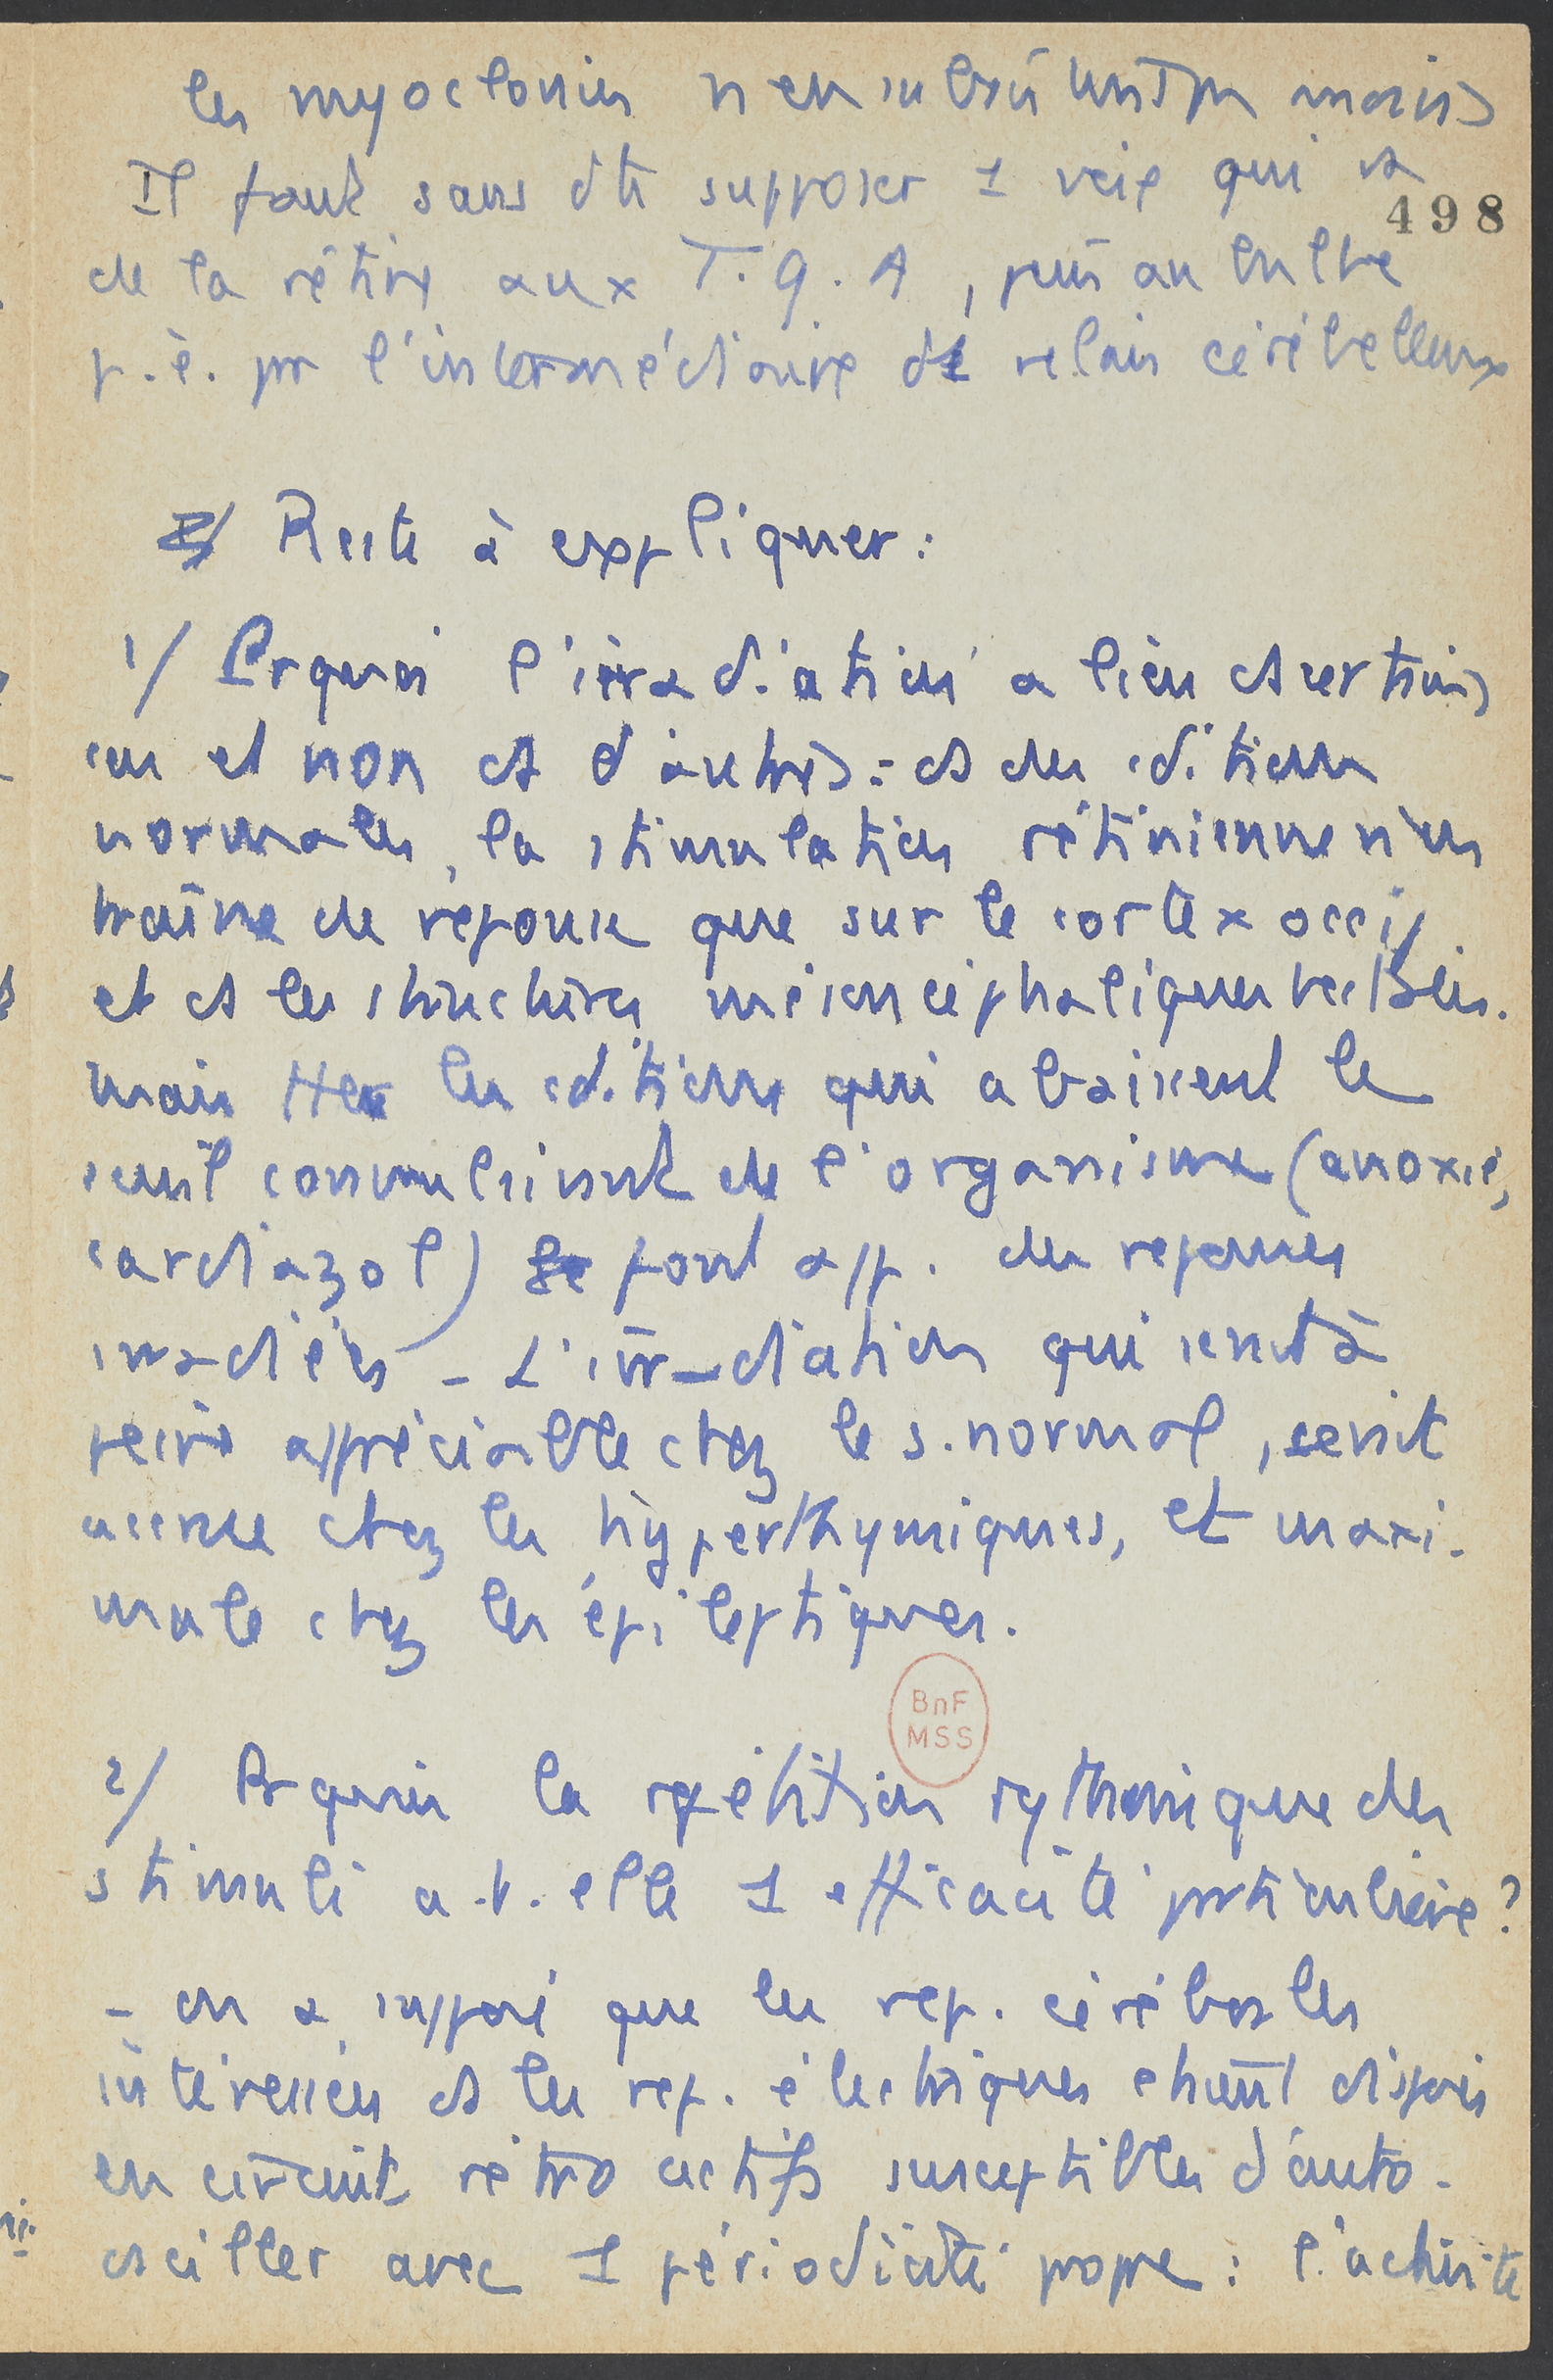 les myoclonies n'en subsistent pas moins
Il faut sans dte supposer 1 voie qui va
498
de la rétine aux T.q.A, puis au bulbe
p.ê. pr l'intermédiaire de relais cérébelleux
Reste à expliquer :
1/ Prquoi l'irradiation a lieu ds certains
cas et non ds d'autres : ds des cditions
normales, la stimulation rétinienne n'en
traîne de réponse que sur le cortex occip.
et ds les structures mésencéphaliques
mais ttes les cditions qui abaissent le
seuil convulsivant de l'organisme (anoxie,
cardiazol) font app. des réponses
irradiées – L'irradiation qui serait à
peine appréciable chez le s. normal, serait
accrue chez les hyperthymiques, et maxi-
male chez les épileptiques.
BnF
MSS
2/ Prquoi la répétition rythmique des
stimuli a.t.elle 1 efficacité particulière ?
– on a supposé que les rep. cérébrales
intéressées ds les rep. électriques étaient disposés
en circuits rétroactifs susceptibles d'auto-
osciller avec 1 périodicité propre : l'activité